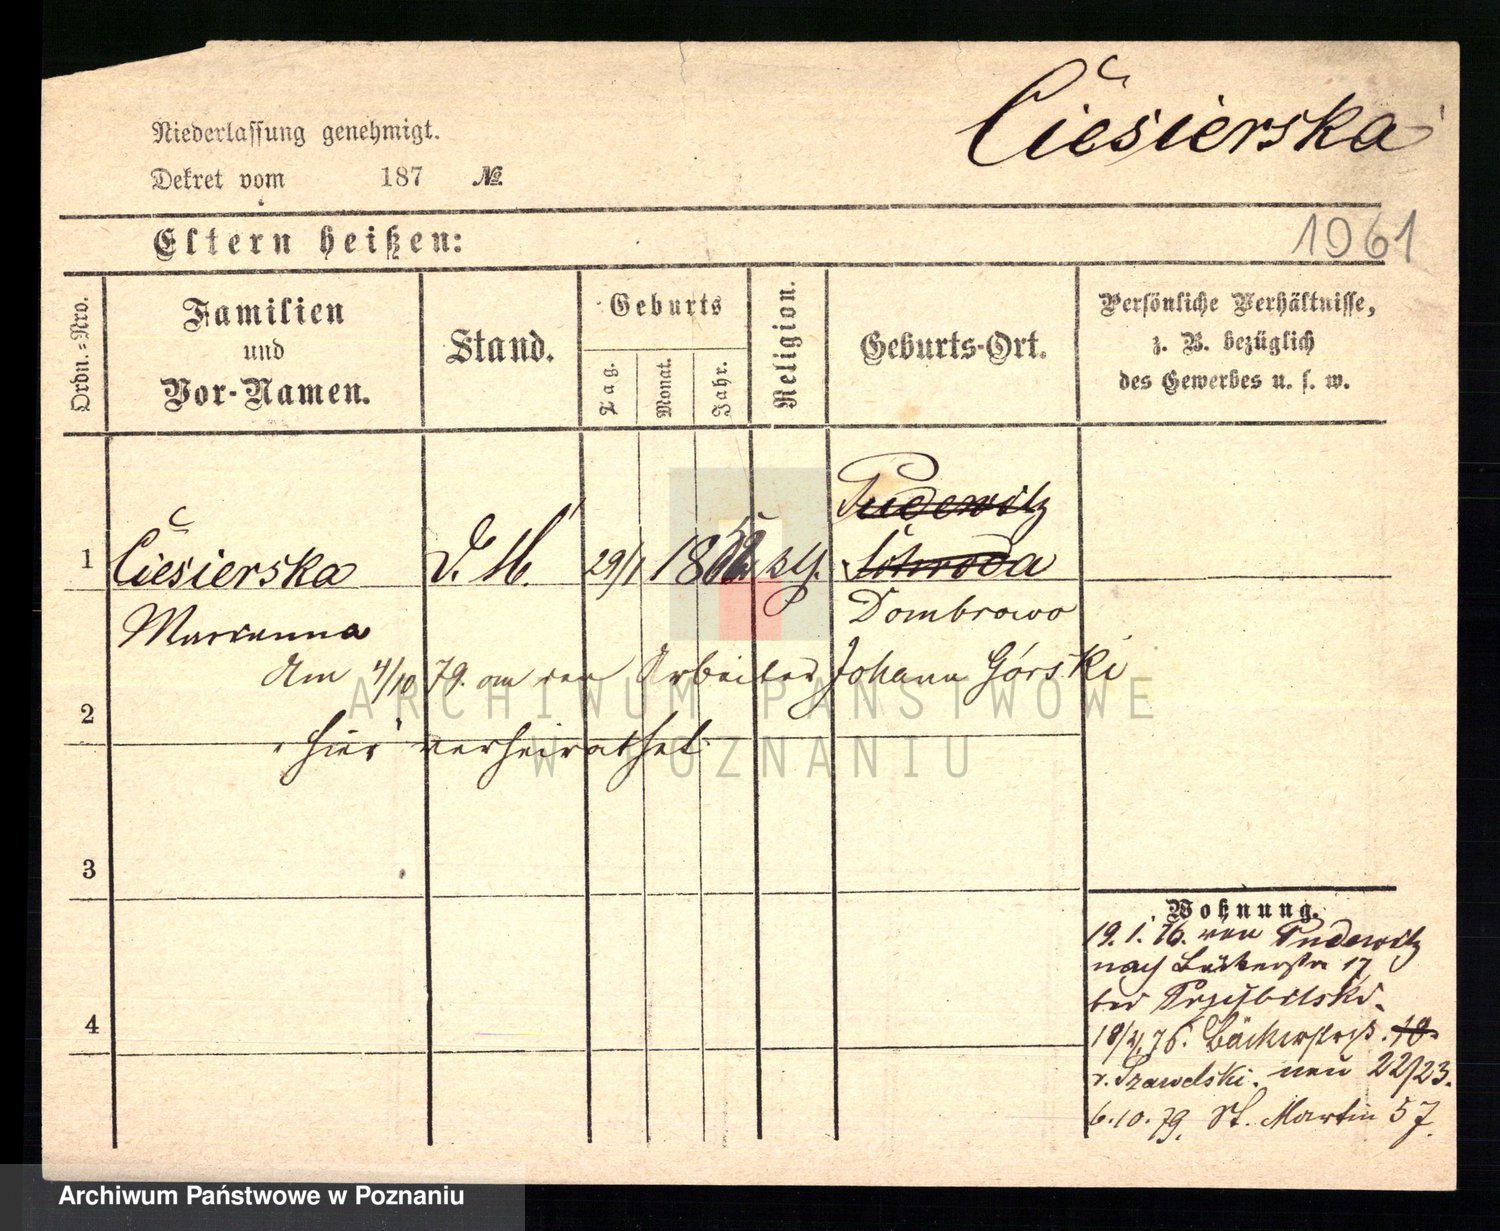 Čiesierska
Niederlassung genehmigt.
Dekret vom 187 №.
1061
Eltern heißen:
Ordn.-Nro.
Familien
und
Vor-Namen.
Stand.
Geburts
Tag.
Monat.
Jahr.
Religion.
Geburts-Ort.
Persönliche Verhältnisse,
z. B. bezüglich
des Gewerbes u. s. w.
Pudewitz
1 Čiesierska D. M. 29/1 18 Schroda
Marianna Dombrowo
Am 4/10 79. an den Arbeiter Johann Górski
2
hier verheirathet.
3
4
Wohnung.
19. 1. 76. von Pudewitz
nach Bäckerstr 17
bei
18/4. 76. 10.
Szawelski. neu 22/23.
6.10.79. St. Martin 57.
ARCHIWUM PAŃSTWOWE
W POZNANIU
Archiwum Państwowe w Poznaniu